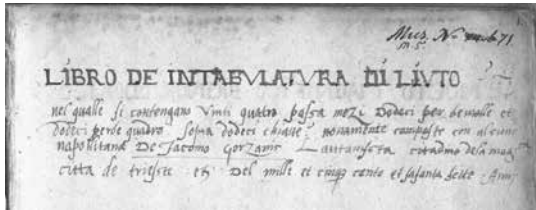 Mus. No
m. 5.
LIBRO DE INTABVLATVRA DI LIVTO
nel qualle si contengano Vinti quatro passa mezi Dodeci per bemolle et
dodeci per be quadro sopra dodeci chiave nonamente composte con alcune
napollitana De Jacomo Gorzanis Lautanista citadino dela mag
citta de trieste et Del mille et cinq cento et sasanta sette Anni